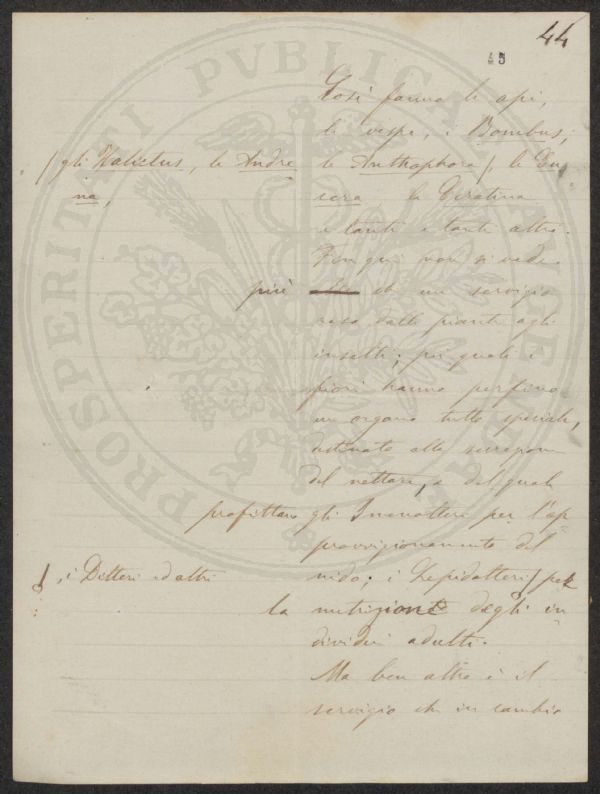 44
45
Così fanno le api,
le vespe, i Bombus,
/ gli Halictus, le Andre
na,
le Anthophora /, le Eu
cera, la Ceratina
e tanti e tanti altri.
Fin qui non si vede
più che un servigio
reso dalle piante agli
insetti; pei quali i
fiori hanno perfino
un organo tutto speciale,
destinato alla secrezione
del nettare, e del quale
profittano gli Imenotteri per l'ap
provvigionamento del
nido; i Lepidotteri / per
, i Ditteri ed altri
la nutrizione degli in
dividui adulti.
Ma ben altro è il
servigio che in cambio
PROSPERITATI PVBLICAE AVGENDAE